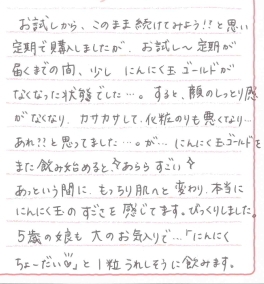 お試しから、このまま続けてみよう!!と思い
定期で購入しましたが、お試し〜定期が
届くまでの間、少し にんにく玉ゴールドが
なくなった状態でした…。すると、顔のしっとり感
がなくなり、カサカサして、化粧のりも悪くなり…
あれ??と思ってました…。が… にんにく玉ゴールドを
また飲み始めると、あらら すごい
あっという間に、もっちり肌へと変わり、本当に
にんにく玉のすごさを感じてます。びっくりしました。
5歳の娘も大のお気入りで…「にんにく
ちょーだい」と1粒うれしそうに飲みます。